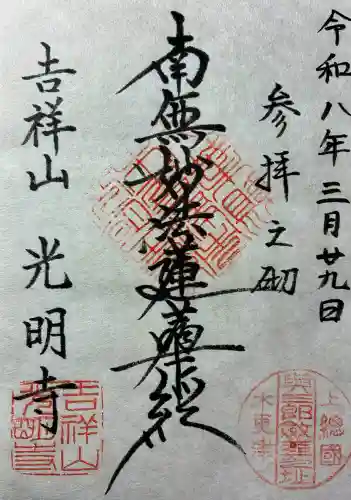 令和八年三月廿九日
参拝之砌
南無妙法蓮華経
吉祥山 光明寺
吉祥山
光明寺
上総國
木更津